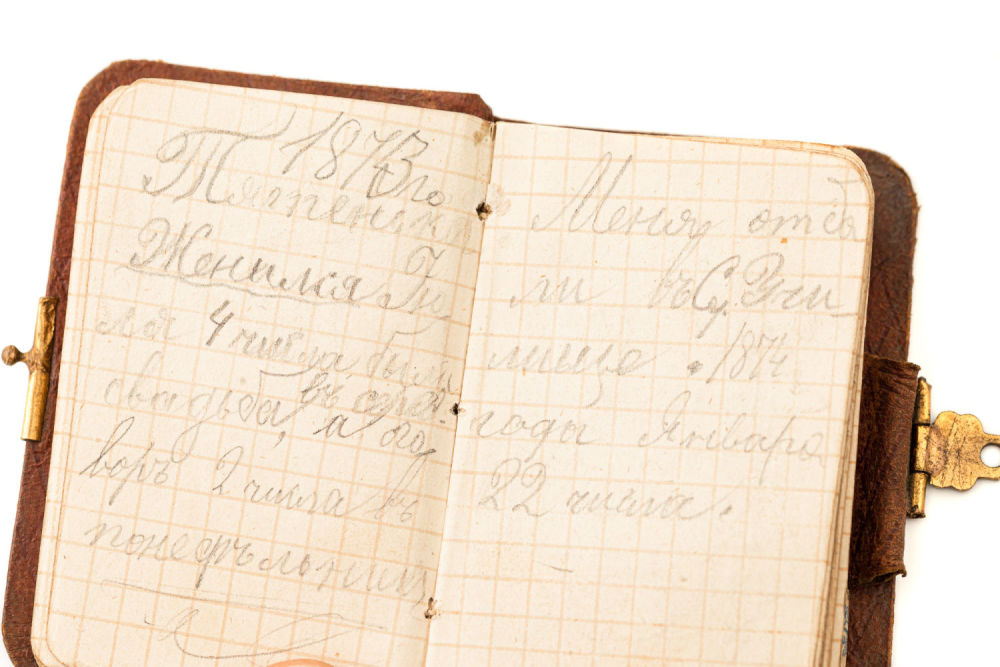 1873 го
Тятенька
Женился Iю
ля 4 числа была
свадьба, въ среду
а ого
воръ 2 числа въ
понедѣльник,
Меня отда
ли въ Су. Учи
лище 1874
годы Января
22 числа.